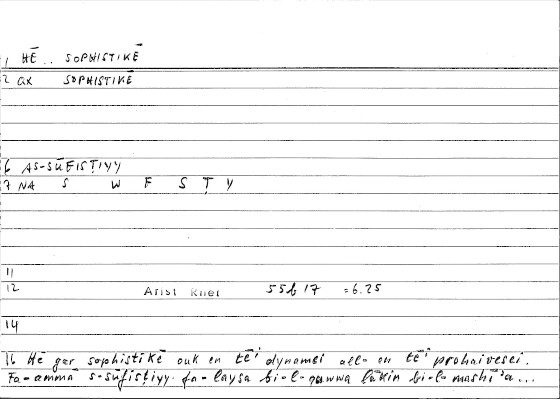 1 HĒ .. SOPHISTIKĒ
2 ax SOPHISTIKĒ
6 AS-SŪFISṬIYY
7 NA S W F S Ṭ Y
11
12 Arist Rhet 55b17 =6.25
14
16 Hē gar sophistikē ouk en tēi dynamei all- en tēi prohairesei.
Fa-ammā s-sūfisṭiyy fa-laysa bi-l-quwwa lākin bi-l-mashī'a...